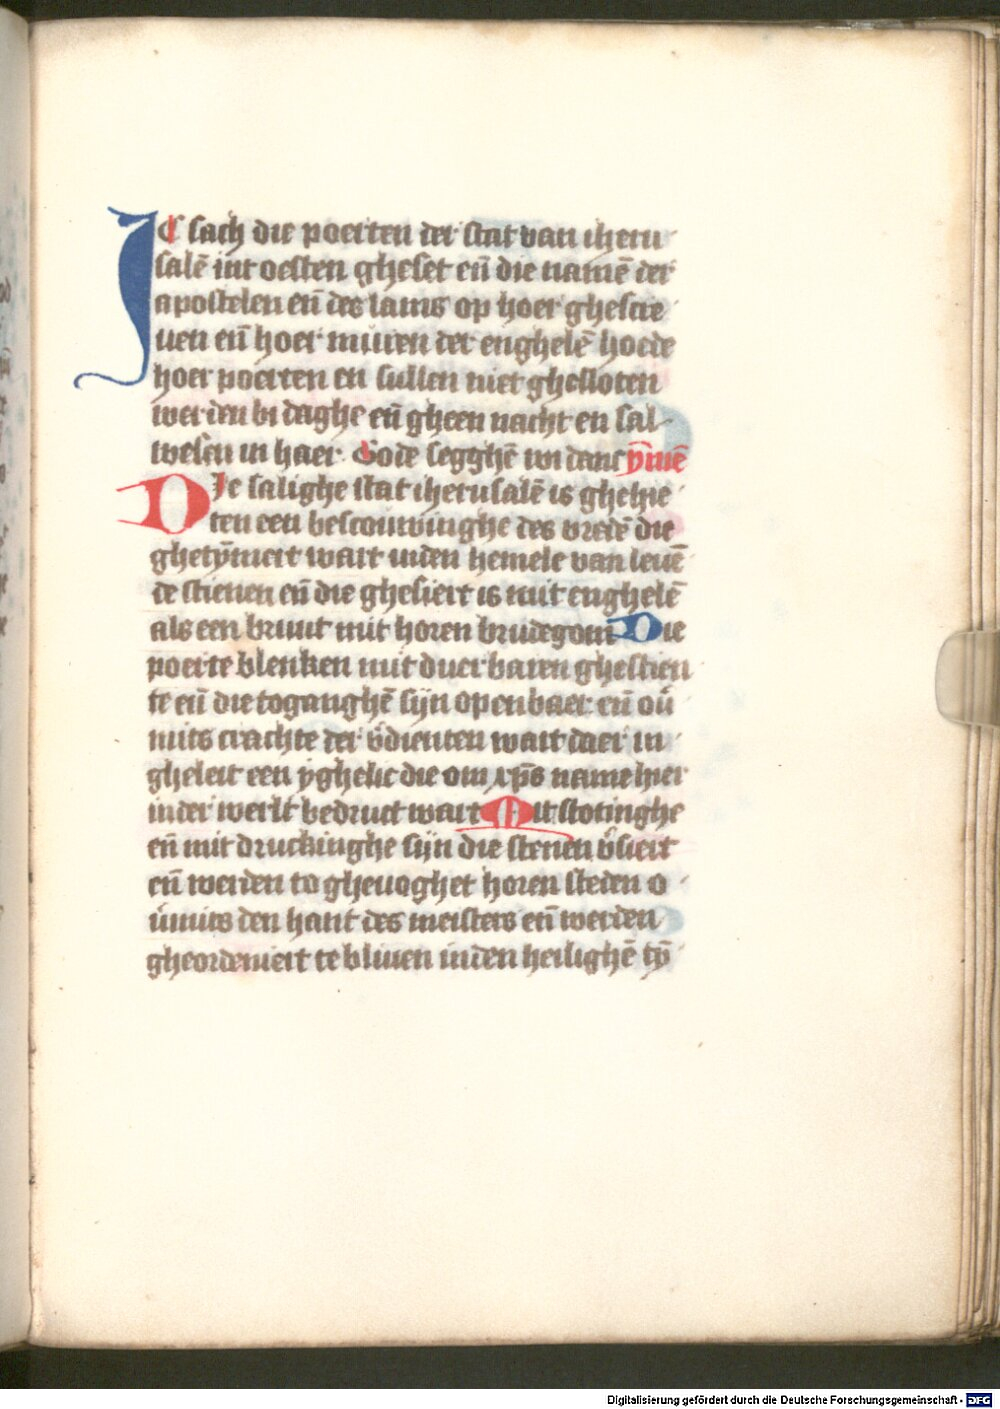 IC sach die poerten der stat van iheru
salē int oesten gheset eñ die namē der
apostelen eñ des lams op hoer ghescre
uen eñ hoer muren der enghelē hoede
hoer poerten en sullen niet ghesloten
werden bi daghe eñ gheen nacht en sal
wesen in haer Gode segghē wi danc ȳmē
Die salighe stat iherusalē is ghehie
ten een bescouwinghe des vredē die
ghetȳmert wart inden hemele van leuē
de stienen eñ die ghesiert is mit enghelē
als een bruut mit horen brudegom Die
poerte blenken mit duerbaren ghestien
te eñ die toganghē sijn openbaer eñ ou̅
mits crachte der v̅dienten wart daer in
gheleit een yghelic die om xp̄s name hier
in der werlt bedruct wart Mit stotinghe
eñ mit druckinghe sijn die stenen v̅siert
eñ werden to gheuoghet horen steden o
u̅mits den hant des meisters eñ werden
gheordeniert te bliuen inden heilighē tȳ
Digitalisierung gefördert durch die Deutsche Forschungsgemeinschaft - DFG